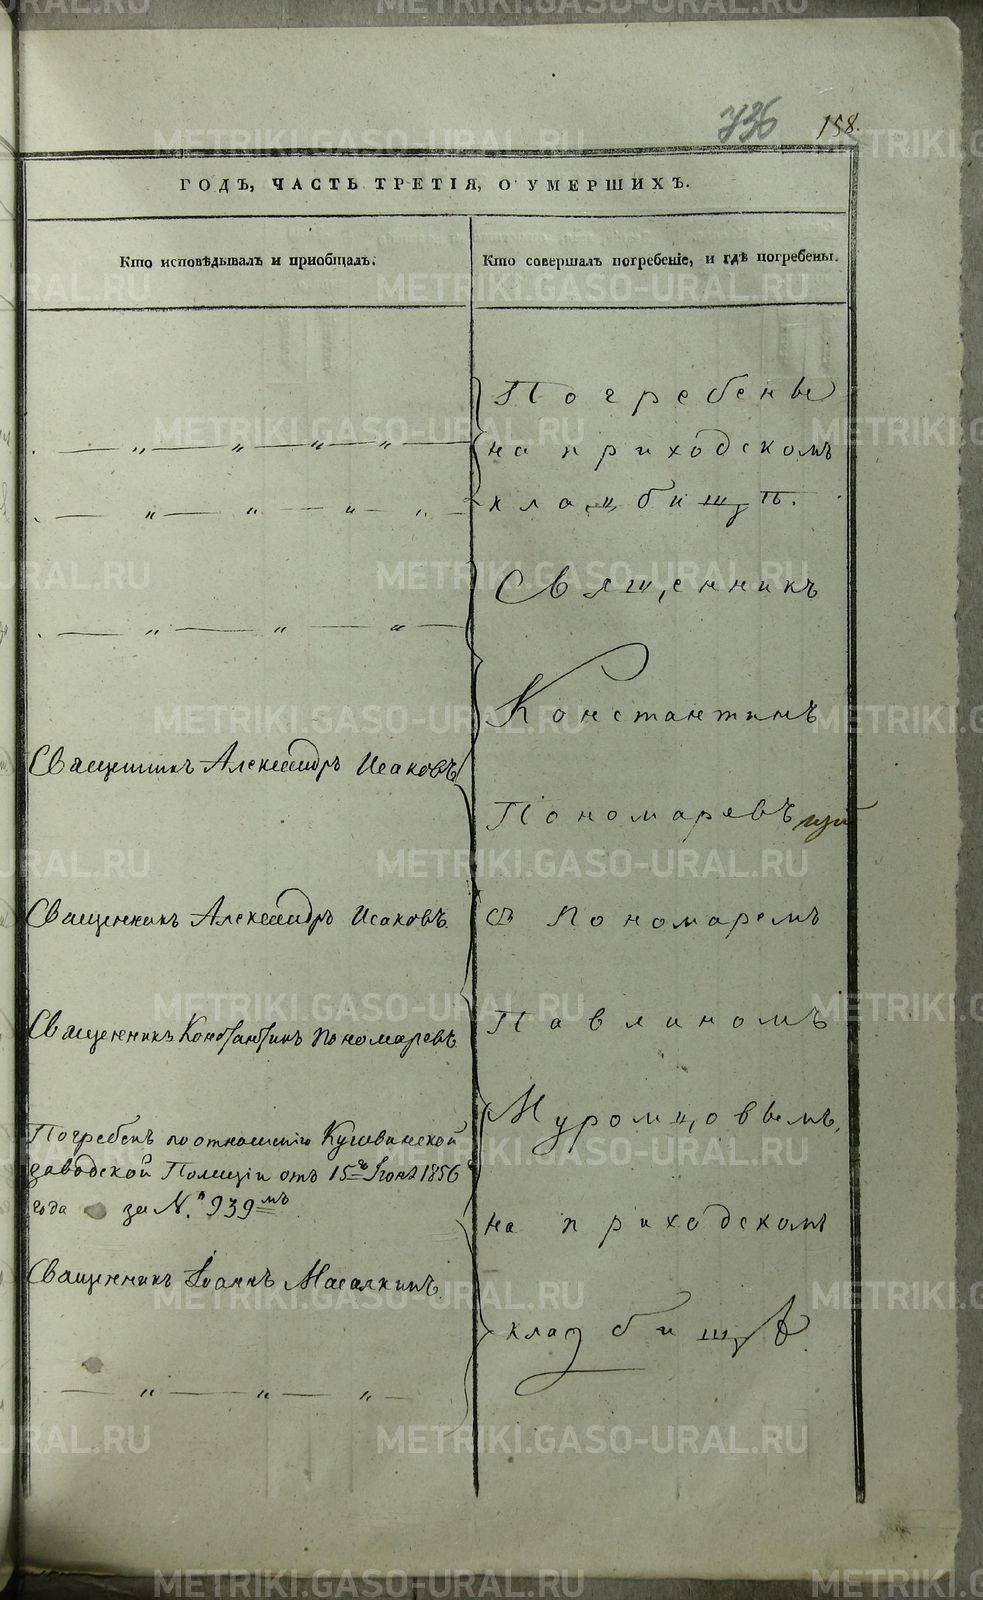 736 158.
ГОДЪ, ЧАСТЬ ТРЕТІЯ, О УМЕРШИХЪ.
Кто исповѣдывалъ и приобщалъ.
Кто совершалъ погребеніе, и гдѣ погребены.
— „ — „ — „ — „ —
— „ — „ — „ — „ —
— „ — „ — „ —
Священникъ Александръ Исаковъ
Священникъ Александръ Исаковъ.
Священникъ Константинъ Пономаревъ
Погребенъ по отношенію Кушвинской
заводской Полиціи отъ 15го Іюня 1856
года за N. 939мъ
Священникъ Іоаннъ Масалкинъ.
— „ — „ — „ —
Погребены
на приходскомъ
кладбищѣ.
Священникъ
Константинъ
Пономаревъ
съ Пономаремъ
Павлиномъ
Муромцовымъ,
на приходскомъ
кладбищѣ.
METRIKI.GASO-URAL.RU